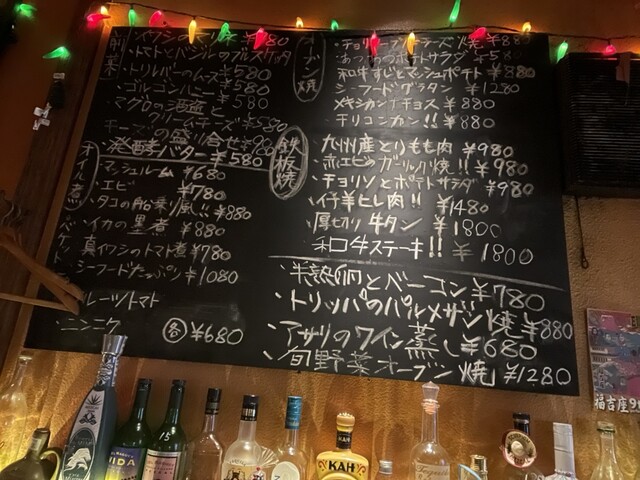 前菜
・イワシのマリネ ¥780
・トマトとバジルのブルスケッタ
・トリレバーのムース ¥580
・ゴルゴンハニー ¥580
・マグロの酒盗と
クリームチーズ ¥580
チーズの盛り合せ
・発酵バター ¥580
オイル煮
・マッシュルーム ¥680
・エビ ¥780
・タコの船乗り風!! ¥880
・イカの墨煮 ¥880
・真イワシのトマト煮 ¥780
・シーフードたっぷり ¥1080
フルーツトマト
・ニンニク 各 ¥680
オーブン焼
・チョリソーチーズ焼 ¥880
・あつあつポテトサラダ ¥580
・和牛すじとマッシュポテト ¥880
・シーフードグラタン ¥1280
・メキシカンナチョス ¥880
・チリコンカン!! ¥880
鉄板焼
・九州産とりもも肉 ¥980
・赤エビのガーリック焼!! ¥980
・チョリソとポテトサラダ ¥980
・仔羊ヒレ肉!! ¥1480
・厚切り牛タン ¥1800
・和牛ステーキ!! ¥1800
・半熟卵とベーコン ¥780
・トリッパのパルメザン焼 ¥880
・アサリのワイン蒸し ¥680
・旬野菜オーブン焼 ¥1280
KAH